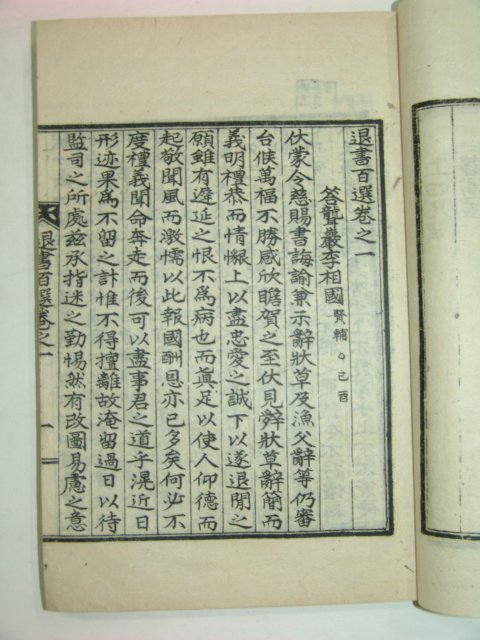 退書百選卷之一
答聾巖李相國 賢輔○己酉
伏蒙令慈賜書誨諭兼示辭狀草及漁父辭等仍審
台候萬福不勝感欣瞻賀之至伏見辭狀草辭簡而
義明禮恭而情懇上以盡忠愛之誠下以遂退閒之
願雖有遲延之恨不爲病也而眞足以使人仰德而
起敬聞風而激懦以此報國酬恩亦已多矣何必不
度禮義聞命奔走而後可以盡事君之道乎滉近日
形迹果爲不留之計惟不得擅離故淹留過日以待
監司之所處玆承指迷之勤惕然有改圖易慮之意
退書百選卷之一
一